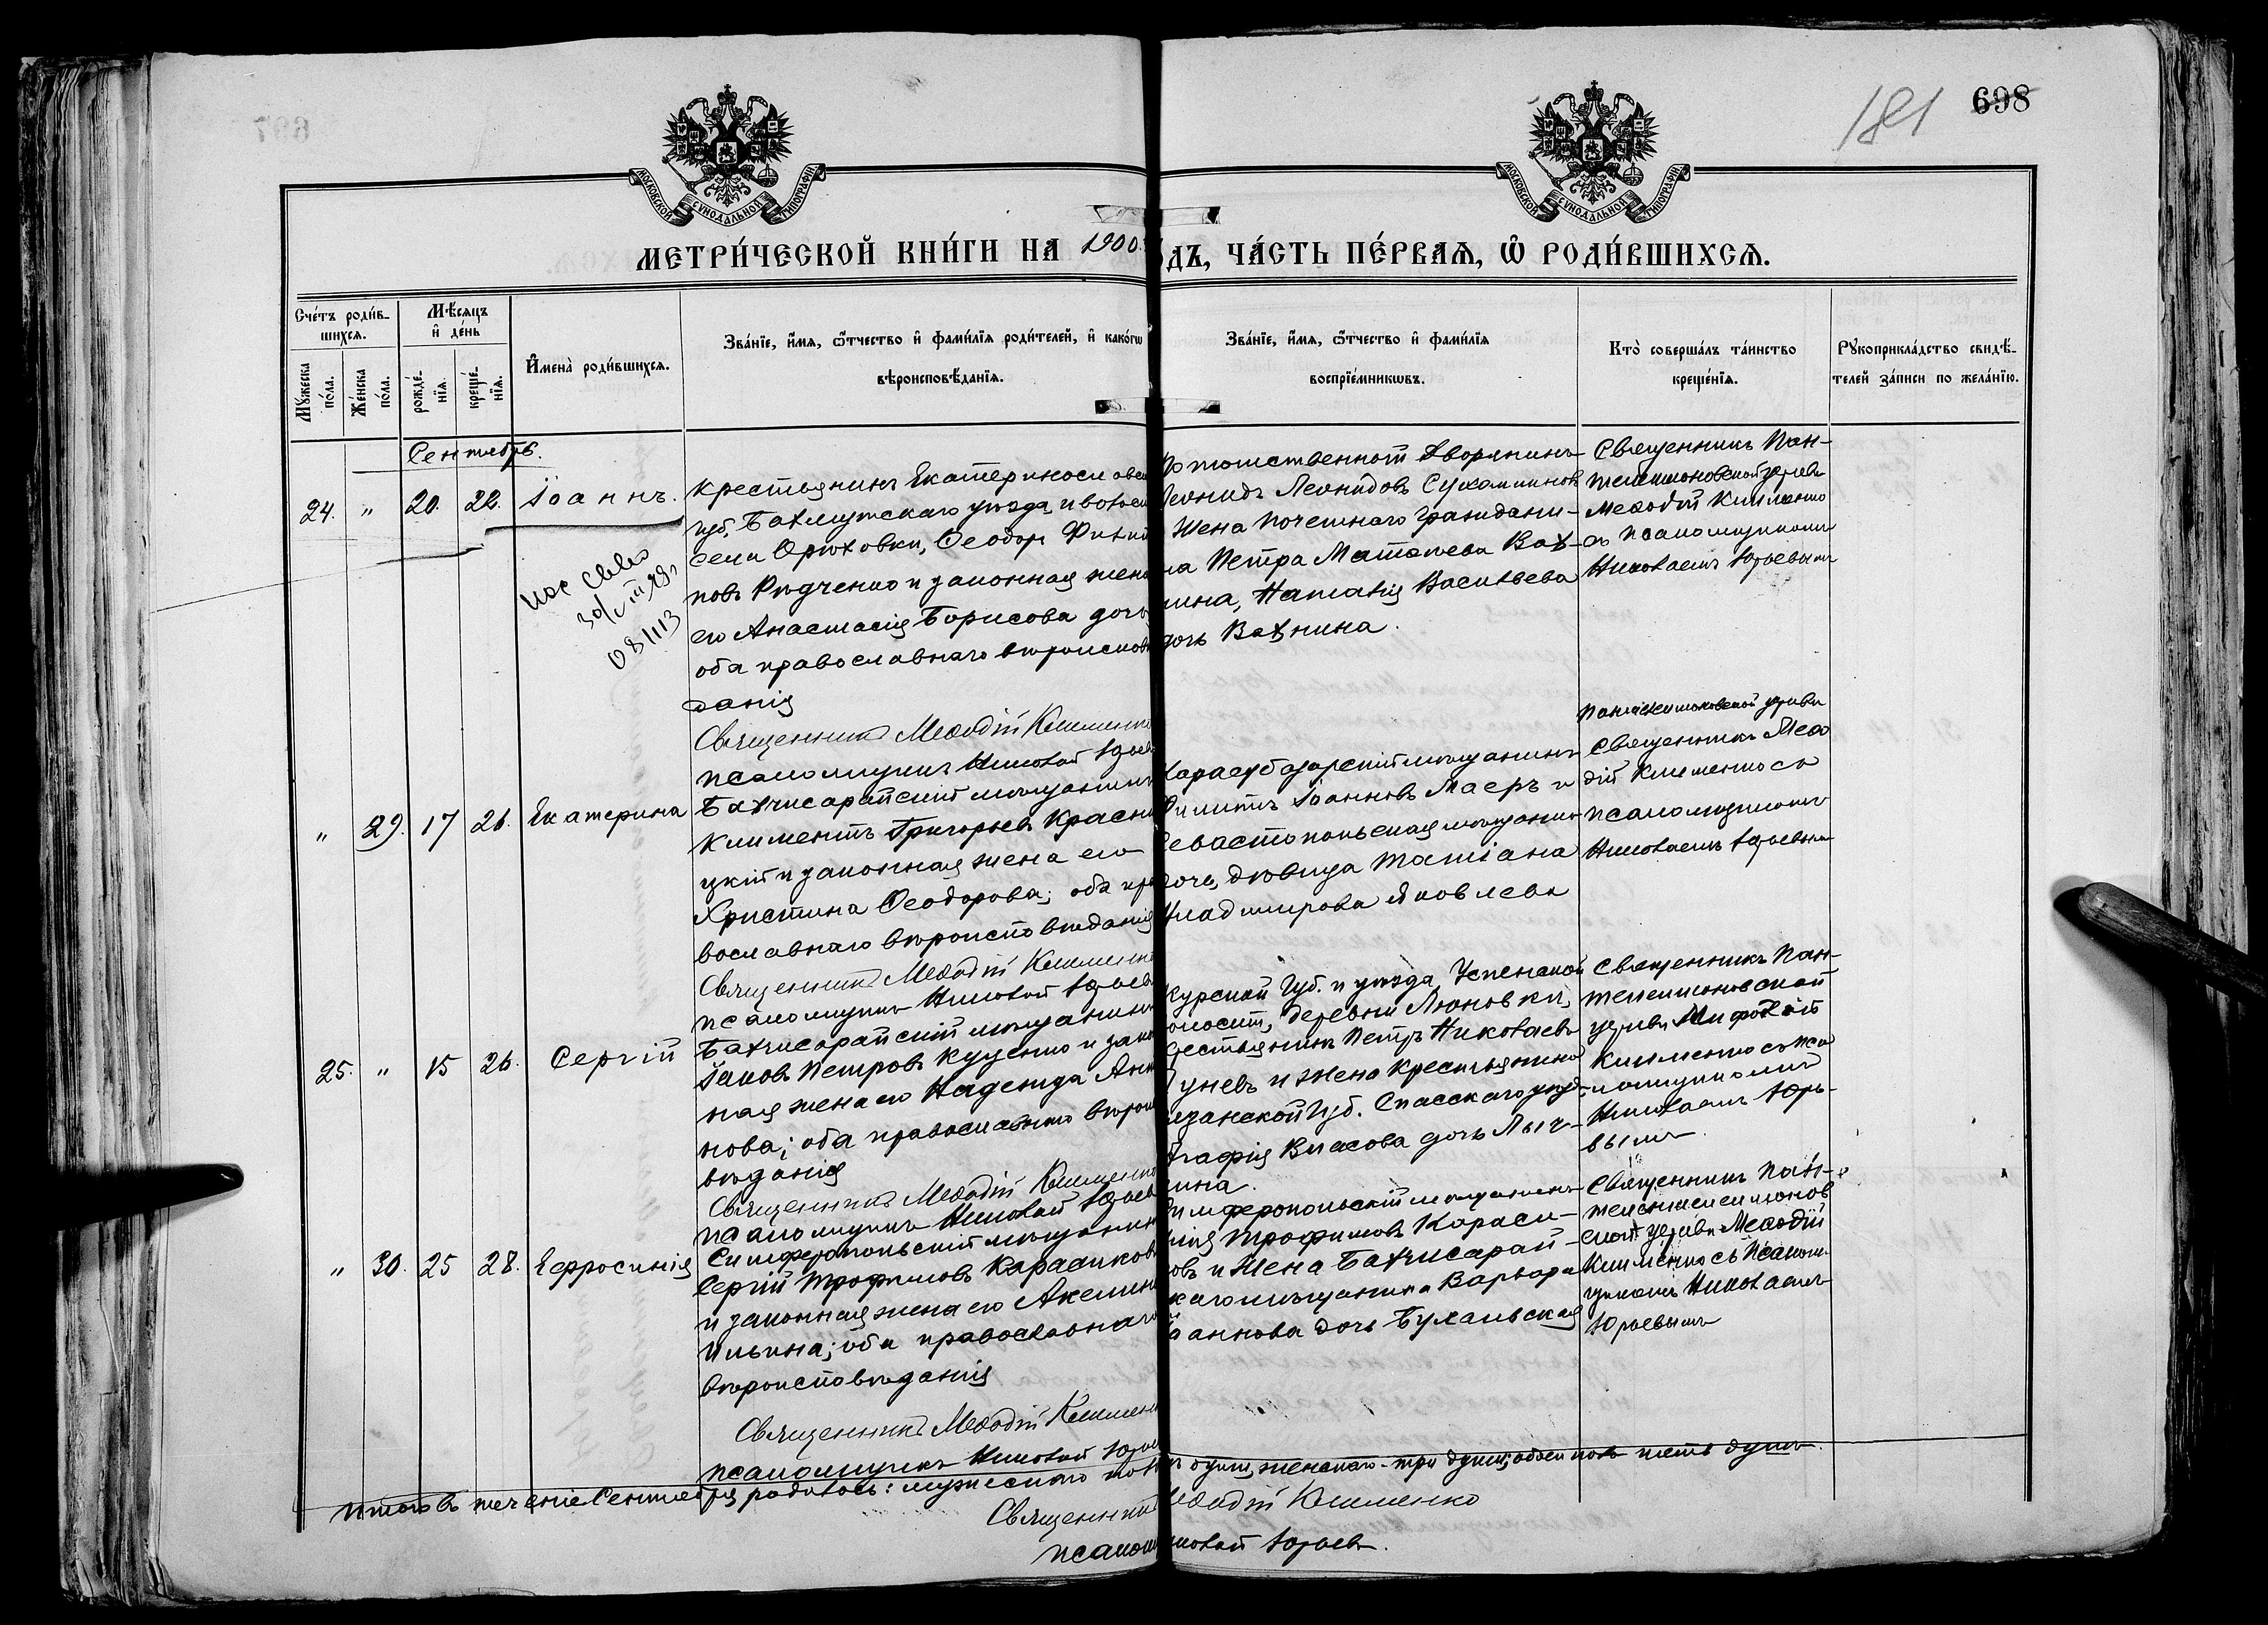 698
181
697
МОСКОВСКОЙ СѴНОДАЛЬНОЙ ТИПОГРАФІИ
МОСКОВСКОЙ СѴНОДАЛЬНОЙ ТИПОГРАФІИ
МЕТРИ́ЧЕСКОЙ КНИ́ГИ НА 1900 ДЪ, ЧА́СТЬ ПЕ́РВАѦ, Ѽ РОДИ́ВШИХСѦ.
Сче́тъ роди́в-
шихсѧ.
Мꙋ́жеска
по́ла.
Же́нска
по́ла.
Мѣ́сѧцъ
и҆ де́нь
рожде́-
нїѧ.
креще́-
нїѧ.
И҆мена̀ роди́вшихсѧ.
Зва́нїе, и҆́мѧ, ѻ҆́тчество и҆ фамилїѧ роди́телей, и҆ како́гѡ
вѣроисповѣ́данїѧ.
Зва́нїе, и҆́мѧ, ѻ҆́тчество и҆ фами́лїѧ
воспрїе́мникѡвъ.
Кто̀ соверша́лъ та́инство
креще́нїѧ.
Рꙋкоприкла́дство свидѣ́-
телей за́писи по жела́нїю.
Сентябрь.
24. " 20. 22. Іоаннъ.
крестьянинъ Екатеринослав
губ. Бахмутскаго уѣзда, и волос
села Орѣховки, Ѳеодоръ Филип
повъ Рѣдченко и законная жена
его Анастасія Борисова дочь
оба православнаго вѣроисповѣ
данія
Священникъ Меѳодій Клименко
псаломщикъ Николай Юрьев
Потомственной дворянинъ
Леонидъ Леонидовъ Сухомлинов
Жена почетнаго граждани-
на Петра Матвѣева Вах-
нина, Наталія Васильева
дочь Вахнина.
Священникъ Пан-
телеимоновской церкви
Меѳодій Клименко
съ псаломщикомъ
Николаемъ Юрьевымъ
" 29. 17 26. Екатерина
Бахчисарайскій мѣщанинъ
Климентъ Григорьевъ Красни
цкій и законная жена его
Христина Ѳеодорова; оба пра
вославнаго вѣроисповѣданія
Священникъ Меѳодій Клименко
псаломщикъ Николай Юрьев
Карасубазарскій мѣщанинъ
Филиппъ Іоанновъ Маеръ и
Севастопольская мѣщанин
дочь, дѣвица Татіана
Владимирова Яковлева
Пантелеимоновской церкви
священникъ Меѳо
дій Клименко съ
псаломщикомъ
Николаемъ Юрьевым
25. " 15 26. Сергій
Бахчисарайскій мѣщанинъ
Іаковъ Петровъ Куценко и зако
ная жена его Надежда Анто
нова; оба православнаго вѣроис
вѣданія
Священникъ Меѳодій Клименко
псаломщикъ Николай Юрьев
Курской Губ. и уѣзда, Успенской
волости, деревни Люновки,
крестьянинъ Петръ Николаевъ
Гуневъ и жена крестьянина
Рязанской Губ. Спасскаго уѣзд
Агафія Власова дочь Лыг-
ина.
Священникъ Пан-
телеимоновской
церкви Мифодій
Клименко съ пса
ломщикомъ
Николаемъ Юрь-
вымъ.
" 30. 25 28. Ефросинія
Симферопольскій мѣщанин
Сергій Трофимовъ Карасиков
и законная жена его Акелина
Ильина; оба православнаго
вѣроисповѣданія
Священникъ Меѳодій Клименк
псаломщикъ Николай Юрье
Симферопольскій мѣщанинъ
Трофимовъ Караси-
овъ и Жена Бахчисарай-
скаго мѣщанина Варвара
Іоаннова дочь Бухальская
Священникъ Пан-
телеимонов
ской церкви Меѳодій
Клименко съ Псалом-
щикомъ Николаемъ
Юрьевымъ
Итого въ теченіе Сентября родилось: мужескаго пола души, женскаго - три души, обоего пола пять душъ.
Священникъ Меѳодій Клименко
псалом николай Юрьевъ.